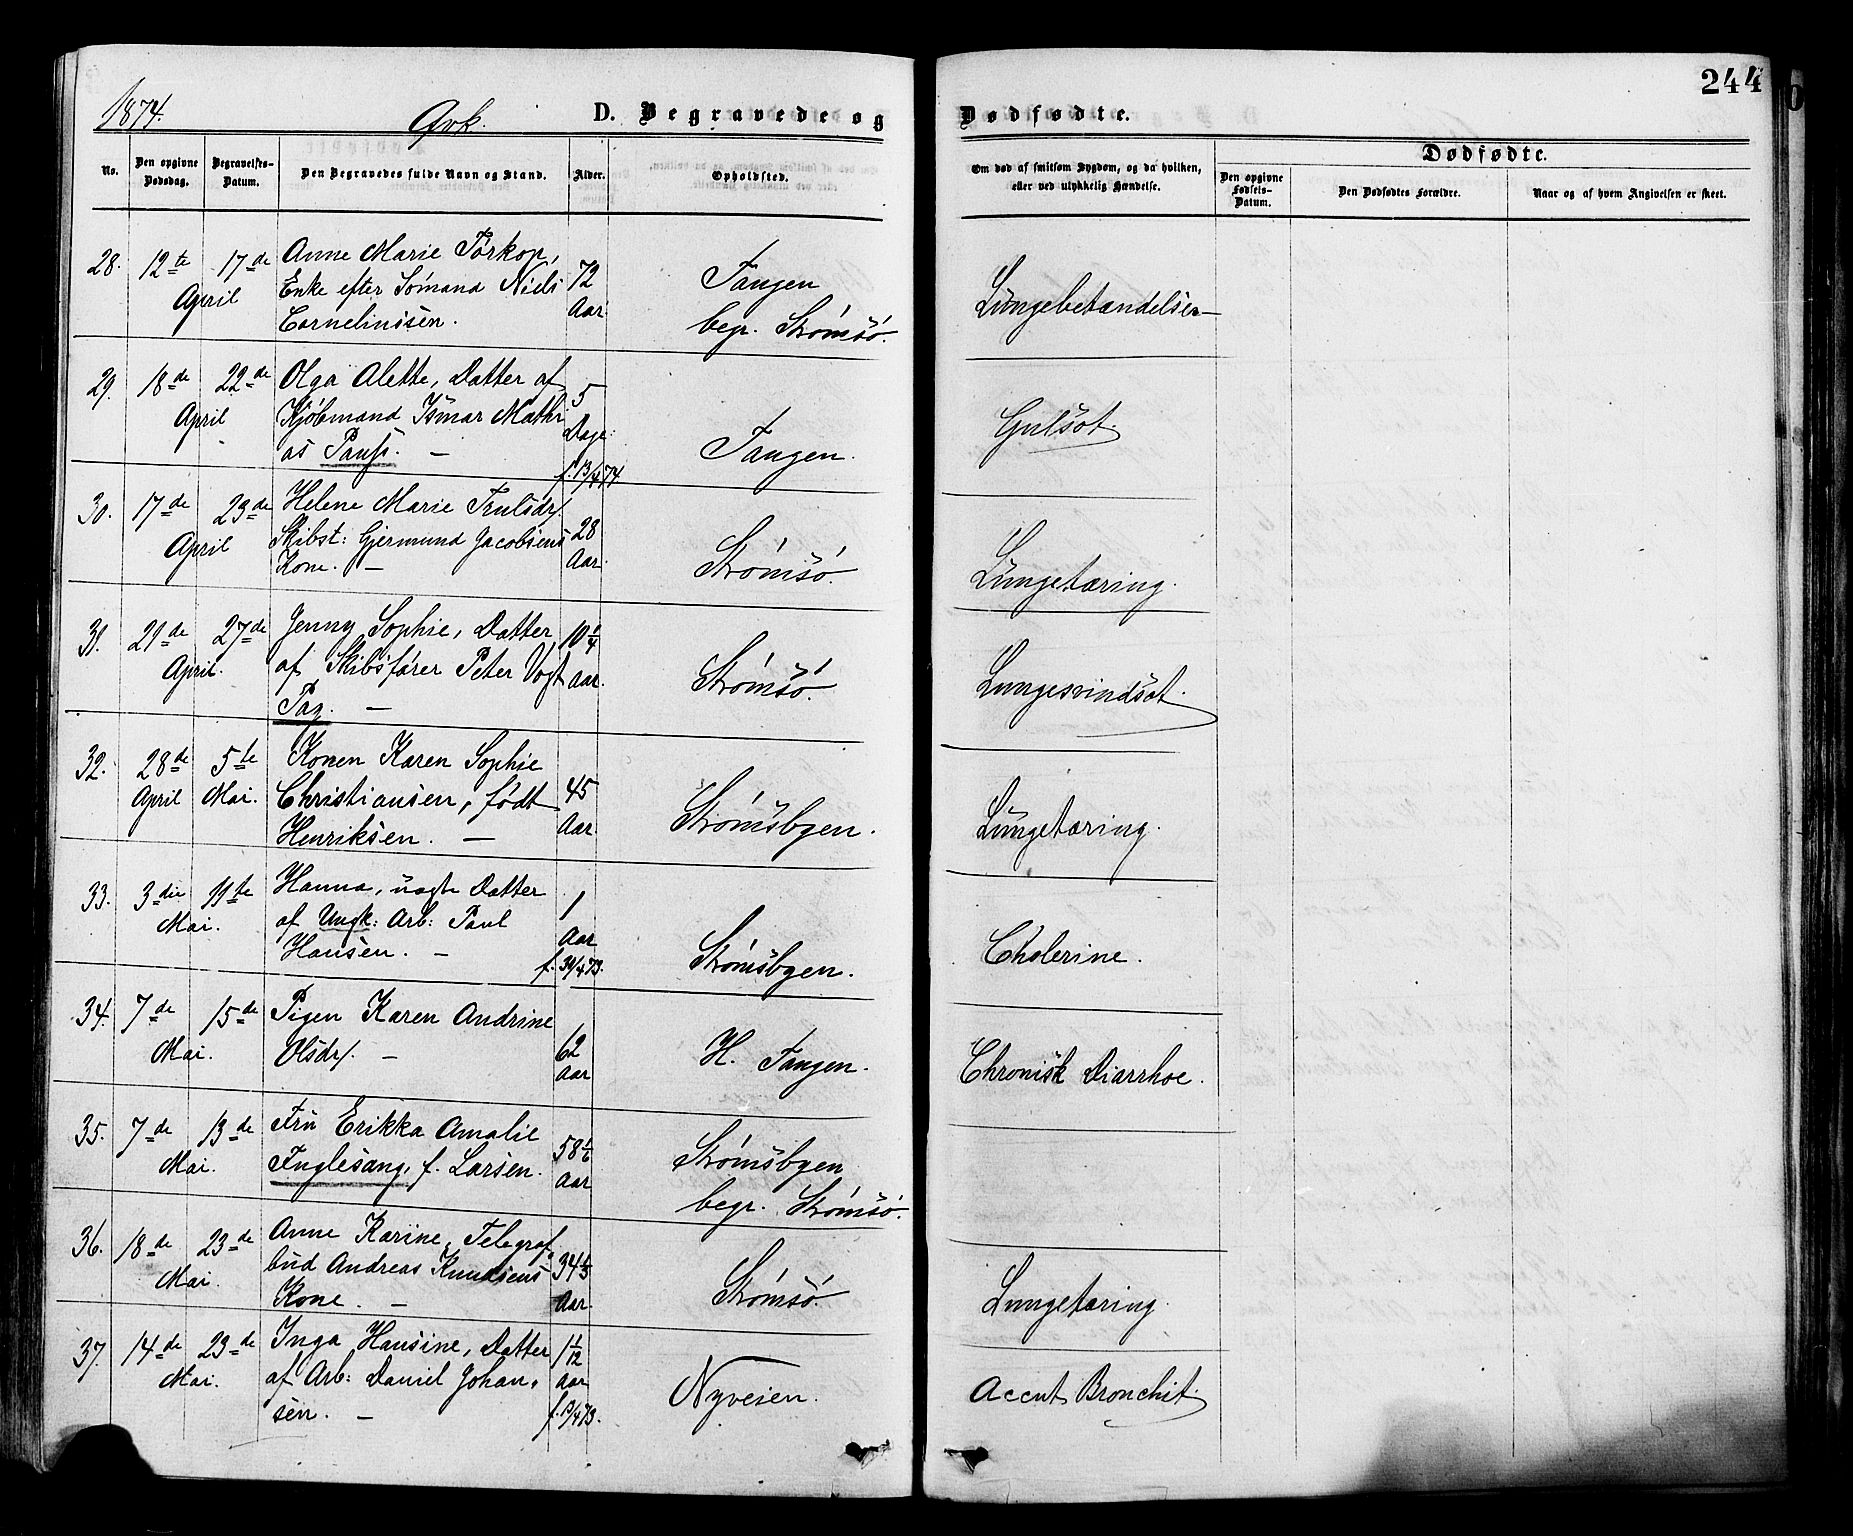 244
1874.
Qvk.
D. Begravede og Dødfødte.
No.
Den opgivne Dødsdag.
Begravelses-Datum.
Den Begravedes fulde Navn og Stand.
Alder.
Opholdsted.
Om død af smitsom Sygdom, og da hvilken,
eller ved ulykkelig Hændelse.
Dødfødte.
Den opgivne Fødsels-Datum.
Den Dødfødtes Forældre.
Naar og af hvem Angivelsen er skeet.
28. 12te April 17de
Anne Marie Torkop,
Enke efter Sømand Niels
Corneliussen.
72 Aar.
Tangen
begr. Strømsø.
Lungebetændelse
29. 18de April 22de
Olga Alette, Datter af
Kjøbmand Ismar Mathi
as Paus. —
5 Dage.
f. 13/4 74
Tangen.
Gulsot.
30. 17de April 23de
Helene Marie Trulsdr.
Skibst: Gjermund Jacobsens
Kone. —
28 Aar.
Strømsø.
Lungetæring.
31. 21de April. 27de
Jenny Sophie, Datter
af Skibsfører Peter Vogt
Pay. —
10 1/4 Aar.
Strømsø.
Lungesvindsot.
32. 28de April 5te Mai.
Konen Karen Sophie
Christiansen, født
Henriksen. —
45 Aar.
Strømsbyen.
Lungetæring.
33. 3die Mai. 11te
Hanna, uægte Datter
af Ungk: Arb: Paul
Hansen. —
1 Aar
f. 30/4 73.
Strømsbyen.
Cholerine.
34. 7de Mai. 15de
Pigen Karen Andrine
Olsdr. —
62 Aar
H. Tangen.
Chronisk Diarrhoe.
35. 7de Mai. 13de
Fru Erikka Amalie
Fuglesang, f. Larsen.
58 1/6 Aar
Strømsbyen
begr. Strømsø.
36. 18de Mai. 23de
Anne Karine, Telegraf-
bud Andreas Knudsens
Kone. —
34 1/3 Aar.
Strømsø.
Lungetæring.
37. 14de Mai. 23de
Inga Hansine, Datter
af Arb: Daniel Johan-
sen. —
1 1/12 Aar
Nyveien.
Accut Bronchit.